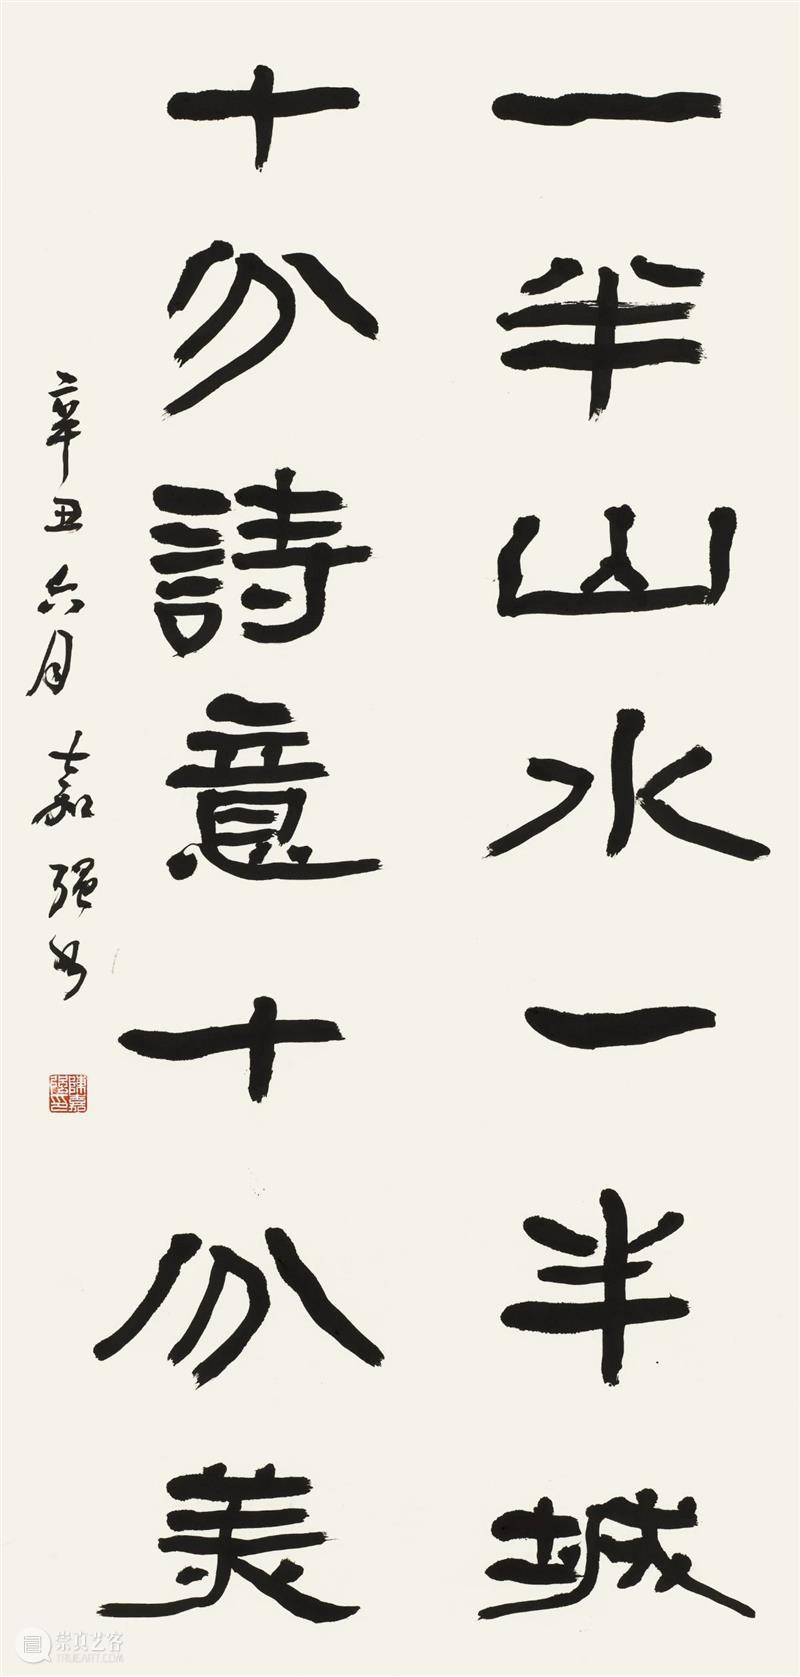 一半山水一半城
十分詩意十分美
辛丑六月嘉强书
陳嘉
崇真艺客
WWW.TRUEART.COM